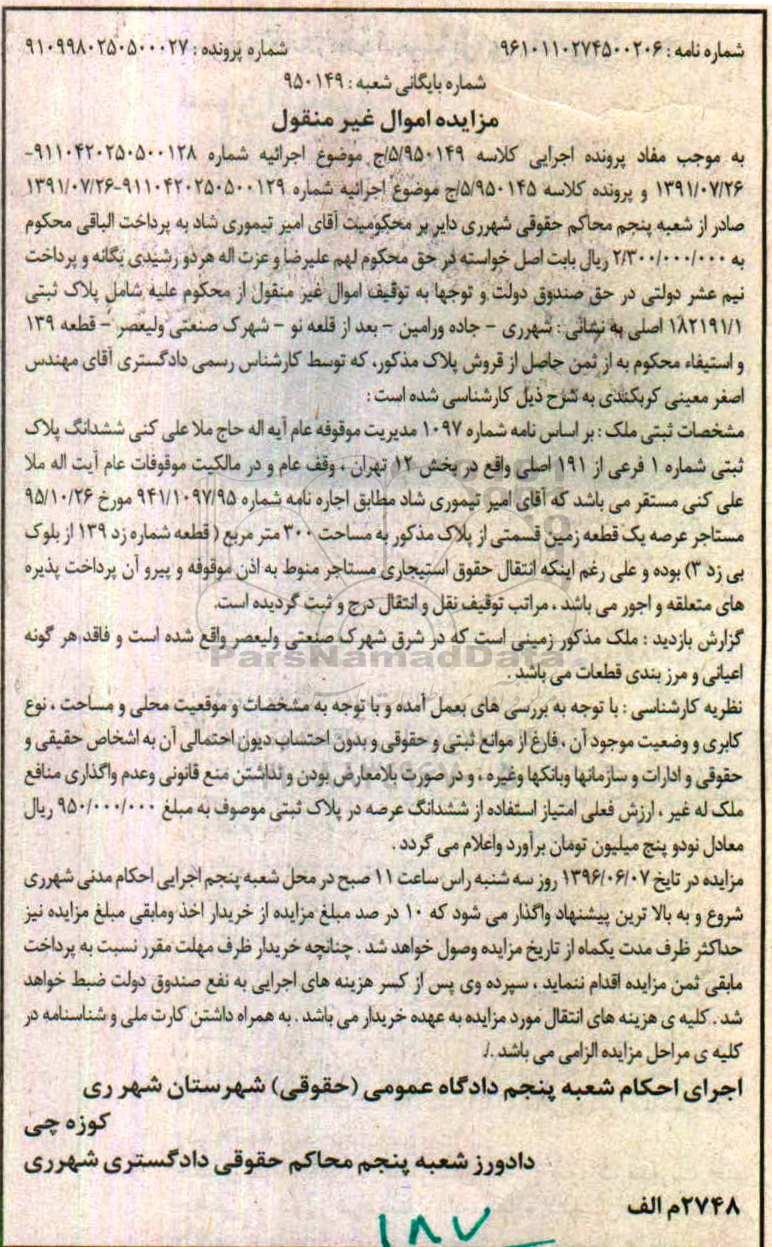 شماره نامه : ۹۶۱۰۱۱۰۲۷۴۵۰۰۲۰۶ شماره پرونده : ۹۱۰۹۹۸۰۲۵۰۵۰۰۰۲۷
شماره بایگانی شعبه : ۹۵۰۱۴۹
مزایده اموال غیر منقول
به موجب مفاد پرونده اجرایی کلاسه ۵/۹۵۰۱۴۹/ج موضوع اجرائیه شماره ۹۱۱۰۴۲۰۲۵۰۵۰۰۱۲۸-
۱۳۹۱/۰۷/۲۶ و پرونده کلاسه ۵/۹۵۰۱۴۵/ج موضوع اجرائیه شماره ۹۱۱۰۴۲۰۲۵۰۵۰۰۱۲۹-۱۳۹۱/۰۷/۲۶
صادر از شعبه پنجم محاکم حقوقی شهرری دایر بر محکومیت آقای امیر تیموری شاد به پرداخت الباقی محکوم
به ۲/۳۰۰/۰۰۰/۰۰۰ ریال بابت اصل خواسته در حق محکوم لهم علیرضا و عزت اله هردو رشیدی یگانه و پرداخت
نیم عشر دولتی در حق صندوق دولت و توجها به توقیف اموال غیر منقول از محکوم علیه شامل پلاک ثبتی
۱۸۲۱۹۱/۱ اصلی به نشانی : شهرری - جاده ورامین - بعد از قلعه نو - شهرک صنعتی ولیعصر - قطعه ۱۳۹
و استیفاء محکوم به از ثمن حاصل از فروش پلاک مذکور، که توسط کارشناس رسمی دادگستری آقای مهندس
اصغر معینی کربکندی به شرح ذیل کارشناسی شده است :
مشخصات ثبتی ملک : بر اساس نامه شماره ۱۰۹۷ مدیریت موقوفه عام آیه اله حاج ملا علی کنی ششدانگ پلاک
ثبتی شماره ۱ فرعی از ۱۹۱ اصلی واقع در بخش ۱۲ تهران ، وقف عام و در مالکیت موقوفات عام آیت اله ملا
علی کنی مستقر می باشد که آقای امیر تیموری شاد مطابق اجاره نامه شماره ۹۴۱/۱۰۹۷/۹۵ مورخ ۹۵/۱۰/۲۶
مستاجر عرصه یک قطعه زمین قسمتی از پلاک مذکور به مساحت ۳۰۰ متر مربع ( قطعه شماره زد ۱۳۹ از بلوک
بی زد ۳) بوده و علی رغم اینکه انتقال حقوق استیجاری مستاجر منوط به اذن موقوفه و پیرو آن پرداخت پذیره
های متعلقه و اجور می باشد ، مراتب توقیف نقل و انتقال درج و ثبت گردیده است.
گزارش بازدید : ملک مذکور زمینی است که در شرق شهرک صنعتی ولیعصر واقع شده است و فاقد هر گونه
اعیانی و مرز بندی قطعات می باشد .
ParsNamadData
نظریه کارشناسی : با توجه به بررسی های بعمل آمده و با توجه به مشخصات و موقعیت محلی و مساحت ، نوع
کابری و وضعیت موجود آن ، فارغ از موانع ثبتی و حقوقی و بدون احتساب دیون احتمالی آن به اشخاص حقیقی و
حقوقی و ادارات و سازمانها وبانکها وغیره ، و در صورت بلامعارض بودن و نداشتن منع قانونی وعدم واگذاری منافع
ملک له غیر ، ارزش فعلی امتیاز استفاده از ششدانگ عرصه در پلاک ثبتی موصوف به مبلغ ۹۵۰/۰۰۰/۰۰۰ ریال
معادل نودو پنج میلیون تومان برآورد واعلام می گردد .
مزایده در تایخ ۱۳۹۶/۰۶/۰۷ روز سه شنبه راس ساعت ۱۱ صبح در محل شعبه پنجم اجرایی احکام مدنی شهرری
شروع و به بالا ترین پیشنهاد واگذار می شود که ۱۰ در صد مبلغ مزایده از خریدار اخذ ومابقی مبلغ مزایده نیز
حداکثر ظرف مدت یکماه از تاریخ مزایده وصول خواهد شد . چنانچه خریدار ظرف مهلت مقرر نسبت به پرداخت
مابقی ثمن مزایده اقدام ننماید ، سپرده وی پس از کسر هزینه های اجرایی به نفع صندوق دولت ضبط خواهد
شد . کلیه ی هزینه های انتقال مورد مزایده به عهده خریدار می باشد . به همراه داشتن کارت ملی و شناسنامه در
کلیه ی مراحل مزایده الزامی می باشد ./.
اجرای احکام شعبه پنجم دادگاه عمومی (حقوقی) شهرستان شهر ری
کوزه چی
دادورز شعبه پنجم محاکم حقوقی دادگستری شهرری
۲۷۴۸م الف
۱۸۷